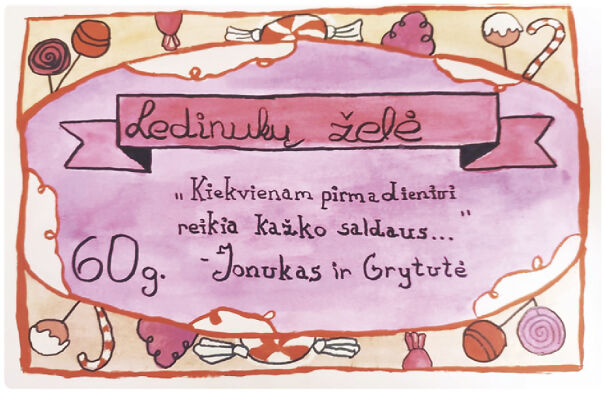 Ledinukų želė
„Kiekvienam pirmadieniui
reikia kažko saldaus..."
60g. - Jonukas ir Grytutė